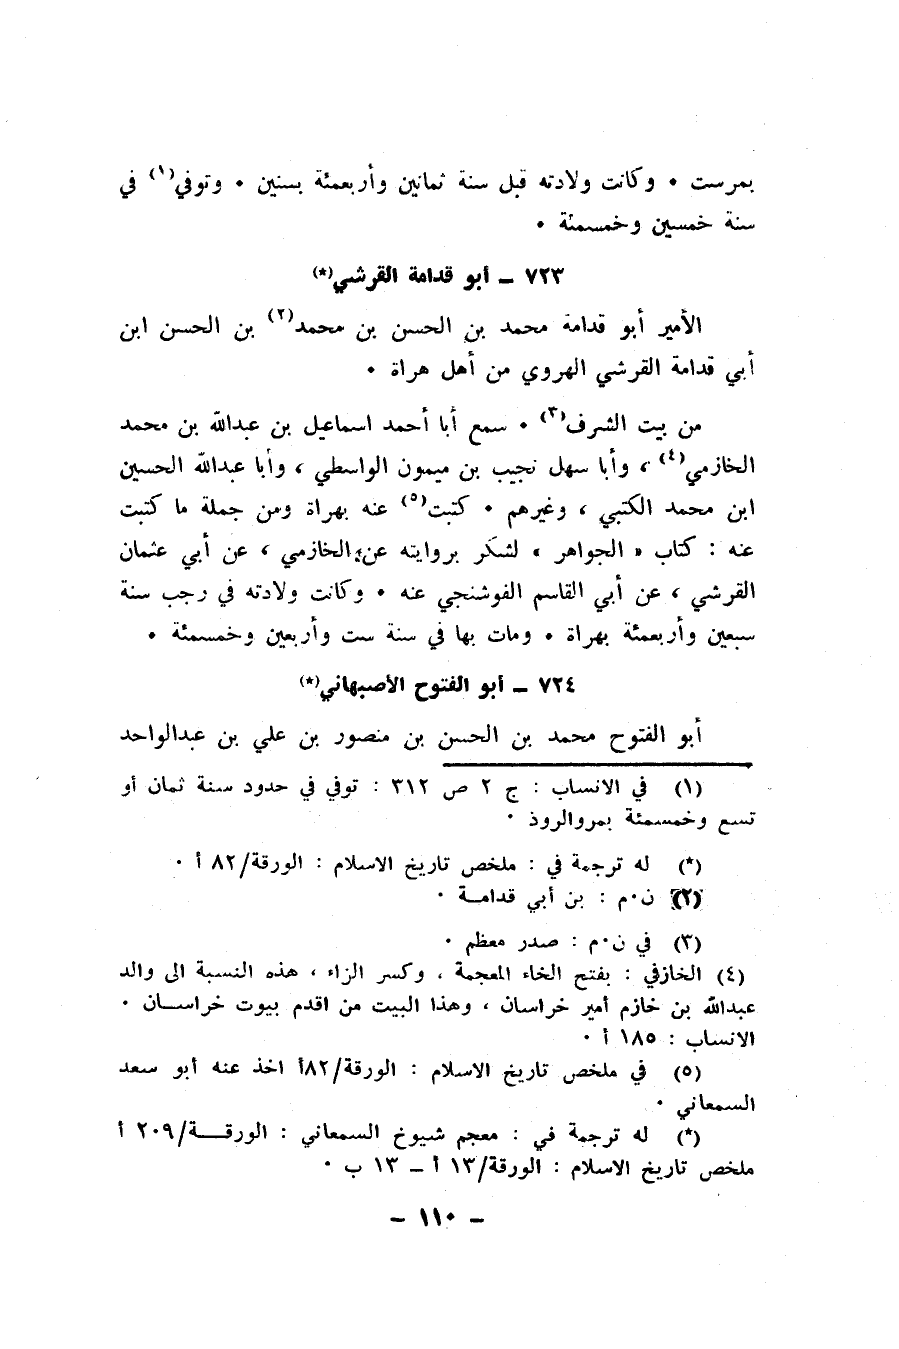 بمرست • وكانت ولادته قبل سنة ثمانين وأربعمئة بسنين • وتوفي(١) في
سنة خمسين وخمسمئة •
٧٢٣ ــ أبو قدامة القرشي(*)
الأمير أبو قدامة محمد بن الحسن بن محمد(٢) بن الحسن ابن
أبي قدامة القرشي الهروي من أهل هراة •
من بيت الشرف(٣) • سمع أبا أحمد اسماعيل بن عبدالله بن محمد
الخازمي(٤) ، وأبا سهل نجيب بن ميمون الواسطي ، وأبا عبدالله الحسين
ابن محمد الكتبي ، وغيرهم • كتبت(٥) عنه بهراة ومن جملة ما كتبت
عنه : كتاب « الجواهر » لشكر بروايته عن الخازمي ، عن أبي عثمان
القرشي ، عن أبي القاسم الفوشنجي عنه • وكانت ولادته في رجب سنة
سبعين وأربعمئة بهراة • ومات بها في سنة ست وأربعين وخمسمئة •
٧٢٤ ــ أبو الفتوح الأصبهاني(*)
أبو الفتوح محمد بن الحسن بن منصور بن علي بن عبدالواحد
(١) في الانساب : ج ٢ ص ٣١٢ : توفي في حدود سنة ثمان أو
تسع وخمسمئة بمروالروذ •
(*) له ترجمة في : ملخص تاريخ الاسلام : الورقة/٨٢ أ •
(٢) ن٠م : بن أبي قدامــة •
(٣) في ن٠م : صدر معظم •
(٤) الخازفي : بفتح الخاء المعجمة ، وكسر الزاء ، هذه النسبة الى والد
عبدالله بن خازم أمير خراسان ، وهذا البيت من اقدم بيوت خراســان •
الانساب : ١٨٥ أ •
(٥) في ملخص تاريخ الاسلام : الورقة/٨٢أ اخذ عنه أبو سعد
السمعاني •
(*) له ترجمة في : معجم شيوخ السمعاني : الورقـــة/٢٠٩ أ
ملخص تاريخ الاسلام : الورقة/١٣ أ ــ ١٣ ب •
ــ ١١٠ ــ